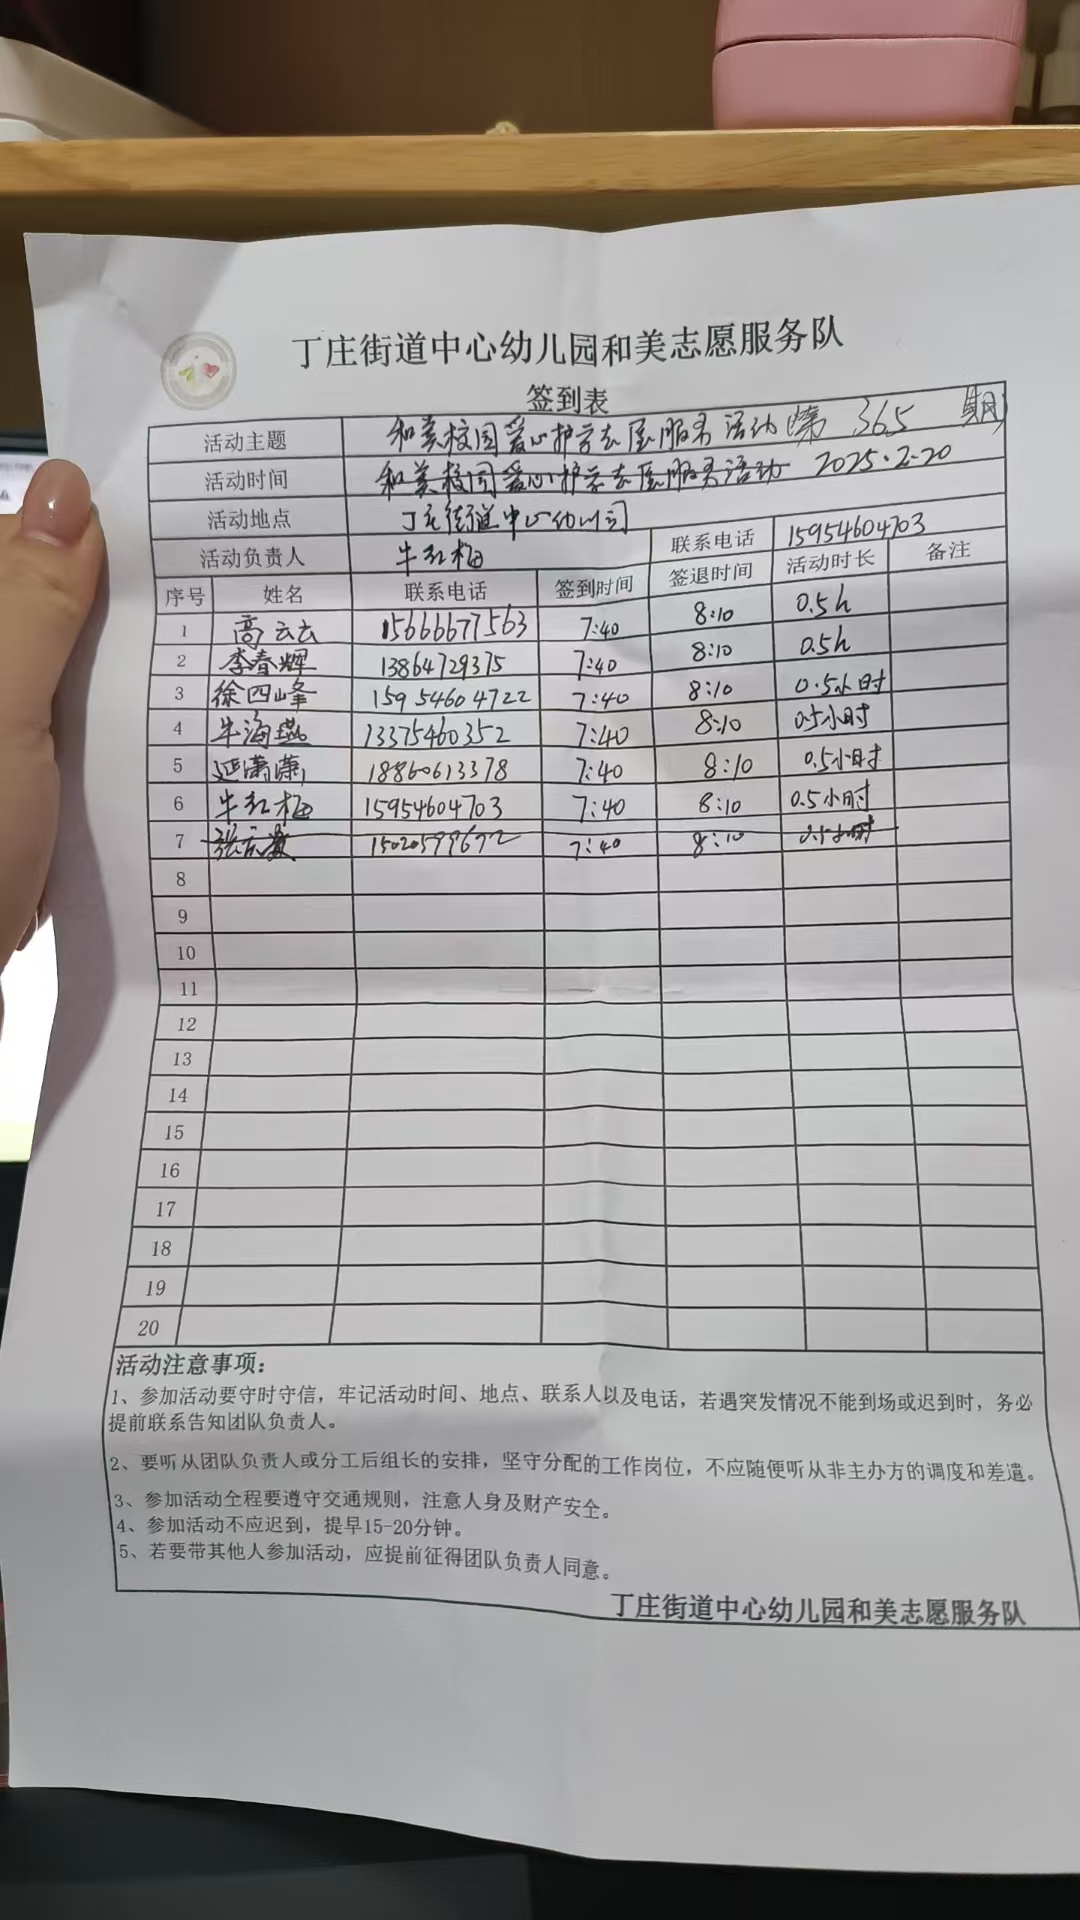 丁庄街道中心幼儿园和美志愿服务队
签到表
活动主题 和美校园爱心护学志愿服务活动第 365 期
活动时间 和美校园爱心护学志愿服务活动 2025.2.20
活动地点 丁庄街道中心幼儿园
活动负责人 牛红梅 联系电话 15954604703
序号 姓名 联系电话 签到时间 签退时间 活动时长 备注
1 高云云 15666677563 7:40 8:10 0.5h
2 李春辉 13864729375 7:40 8:10 0.5h
3 徐四峰 15954604722 7:40 8:10 0.5小时
4 牛海燕 13375460352 7:40 8:10 0.5小时
5 延潇潇 18860613378 7:40 8:10 0.5小时
6 牛红梅 15954604703 7:40 8:10 0.5小时
7 15020599672 7:40 8:10 0.5小时
8
9
10
11
12
13
14
15
16
17
18
19
20
活动注意事项：
1、参加活动要守时守信，牢记活动时间、地点、联系人以及电话，若遇突发情况不能到场或迟到时，务必
提前联系告知团队负责人。
2、要听从团队负责人或分工后组长的安排，坚守分配的工作岗位，不应随便听从非主办方的调度和差遣。
3、参加活动全程要遵守交通规则，注意人身及财产安全。
4、参加活动不应迟到，提早15-20分钟。
5、若要带其他人参加活动，应提前征得团队负责人同意。
丁庄街道中心幼儿园和美志愿服务队